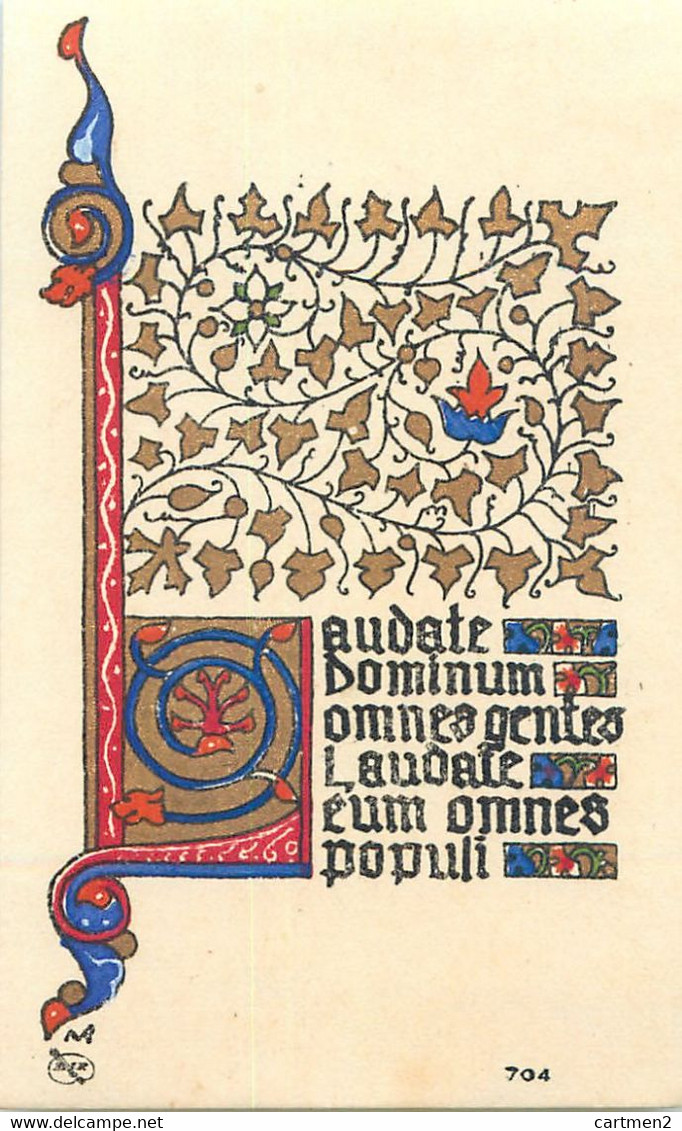 Laudate
Dominum
omnes gentes
Laudate
eum omnes
populi
M
704
cartmen2